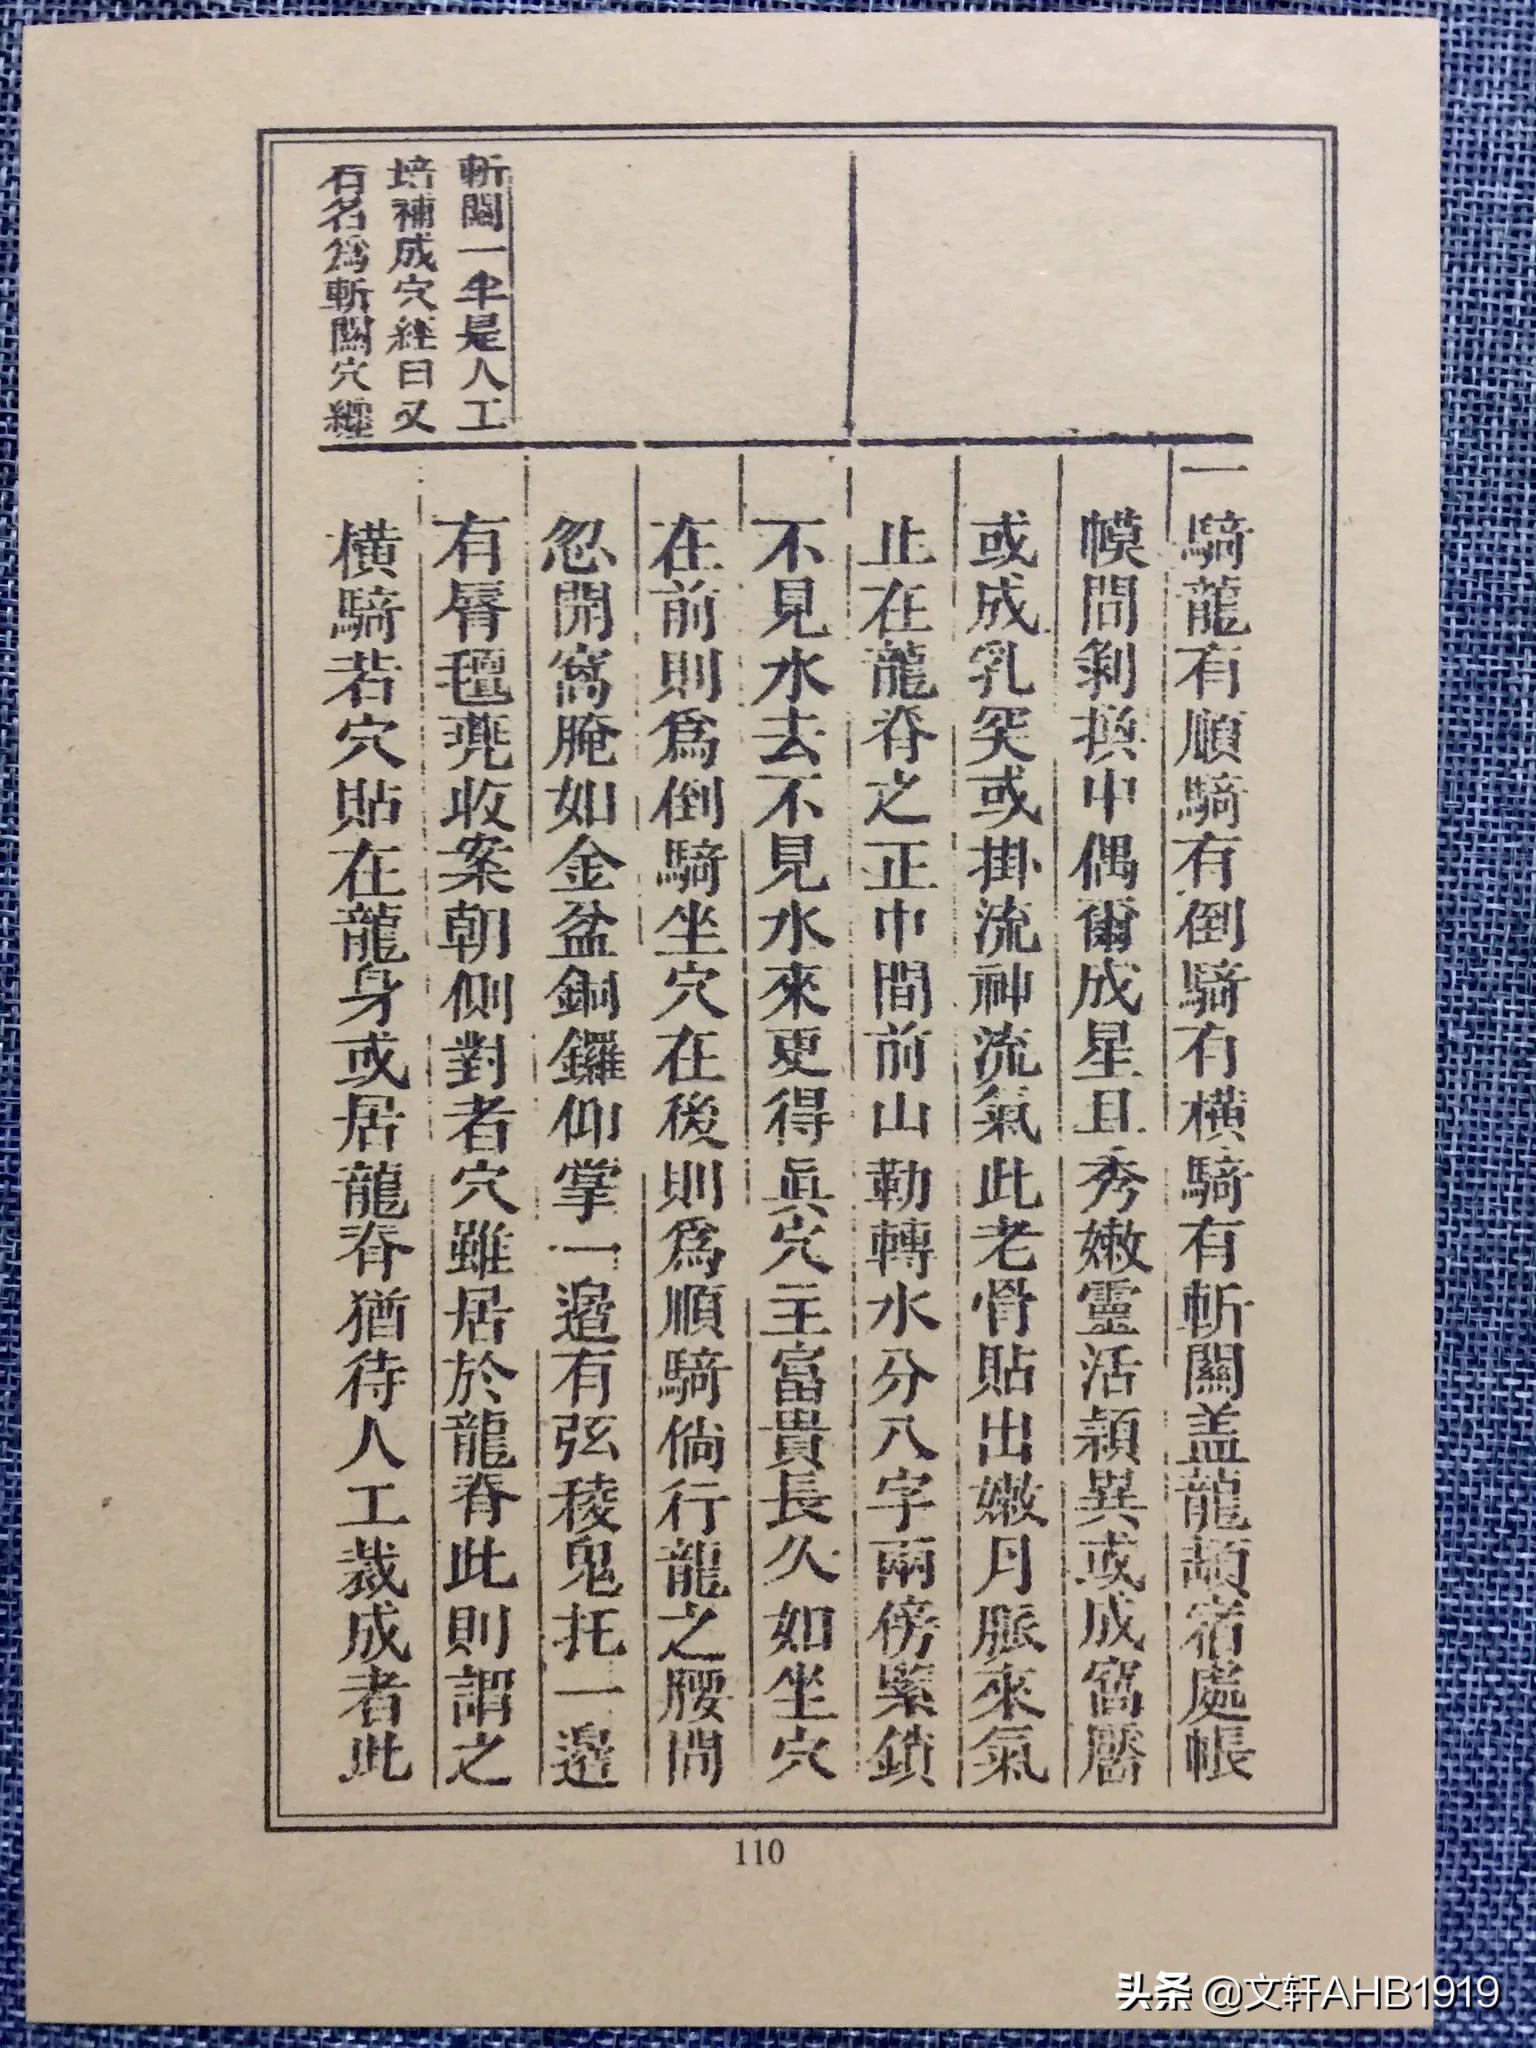 一騎龍有順騎有倒騎有橫騎有斬關盖龍頓宿處帳
幙間剝換中偶爾成星且秀嫩靈活穎異或成窩靨
或成乳突或掛流神流氣此老骨貼出嫩月脈來氣
止在龍脊之正中間前山勒轉水分八字兩傍緊鎖
不見水去不見水來更得眞穴主富貴長久如坐穴
在前則爲倒騎坐穴在後則爲順騎倘行龍之腰間
忽開窩腌如金盆銅鑼仰掌一邉有弦稜鬼托一邉
有脣氊兠收案朝側對者穴雖居於龍脊此則謂之
橫騎若穴貼在龍身或居龍脊猶待人工裁成者此
斬關一半是人工
培補成穴經曰又
石名爲斬關穴經
110
头条 @文轩AHB1919